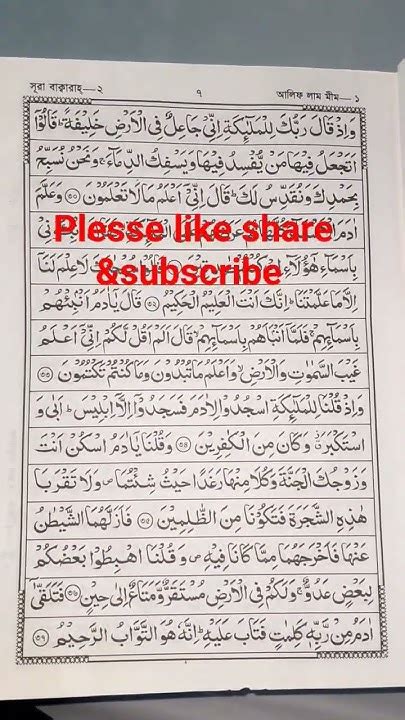 সূরা বাক্বারাহ্—২ ৭ আলিফ লাম মীম—১
وَاِذْ قَالَ رَبُّكَ لِلْمَلٰٓئِكَةِ اِنِّىْ جَاعِلٌ فِى الْاَرْضِ خَلِيْفَةً ؕ قَالُوْٓا
اَتَجْعَلُ فِيْهَا مَنْ يُّفْسِدُ فِيْهَا وَيَسْفِكُ الدِّمَآءَ ۚ وَنَحْنُ نُسَبِّحُ
بِحَمْدِكَ وَنُقَدِّسُ لَكَ ؕ قَالَ اِنِّىْٓ اَعْلَمُ مَالَا تَعْلَمُوْنَ ৩০ وَعَلَّمَ
اٰدَمَ
Plesse like share
بِاَسْمَآءِ هٰٓؤُلَآءِ لَاعِلْمَ لَنَآ
&subscribe
اِلَّا مَا عَلَّمْتَنَا ؕ اِنَّكَ اَنْتَ الْعَلِيْمُ الْحَكِيْمُ ৩২ قَالَ يٰٓاٰدَمُ اَنْۢبِئْهُمْ
بِاَسْمَآئِهِمْ ۚ فَلَمَّآ اَنْۢبَاَهُمْ بِاَسْمَآئِهِمْ ۙ قَالَ اَلَمْ اَقُلْ لَّكُمْ اِنِّىْٓ اَعْلَمُ
غَيْبَ السَّمٰوٰتِ وَالْاَرْضِ ۙ وَاَعْلَمُ مَا تُبْدُوْنَ وَمَا كُنْتُمْ تَكْتُمُوْنَ ৩৩
وَاِذْ قُلْنَا لِلْمَلٰٓئِكَةِ اسْجُدُوْا لِاٰدَمَ فَسَجَدُوْٓا اِلَّآ اِبْلِيْسَ ؕ اَبٰى وَ
اسْتَكْبَرَ ٘ وَكَانَ مِنَ الْكٰفِرِيْنَ ৩৪ وَقُلْنَا يٰٓاٰدَمُ اسْكُنْ اَنْتَ
وَزَوْجُكَ الْجَنَّةَ وَكُلَا مِنْهَا رَغَدًا حَيْثُ شِئْتُمَا ۪ وَلَا تَقْرَبَا
هٰذِهِ الشَّجَرَةَ فَتَكُوْنَا مِنَ الظّٰلِمِيْنَ ৩৫ فَاَزَلَّهُمَا الشَّيْطٰنُ
عَنْهَا فَاَخْرَجَهُمَا مِمَّا كَانَا فِيْهِ ۪ وَقُلْنَا اهْبِطُوْا بَعْضُكُمْ
لِبَعْضٍ عَدُوٌّ ۚ وَلَكُمْ فِى الْاَرْضِ مُسْتَقَرٌّ وَّمَتَاعٌ اِلٰى حِيْنٍ ৩৬ فَتَلَقّٰٓى
اٰدَمُ مِنْ رَّبِّهٖ كَلِمٰتٍ فَتَابَ عَلَيْهِ ؕ اِنَّهٗ هُوَ التَّوَّابُ الرَّحِيْمُ ৩৭